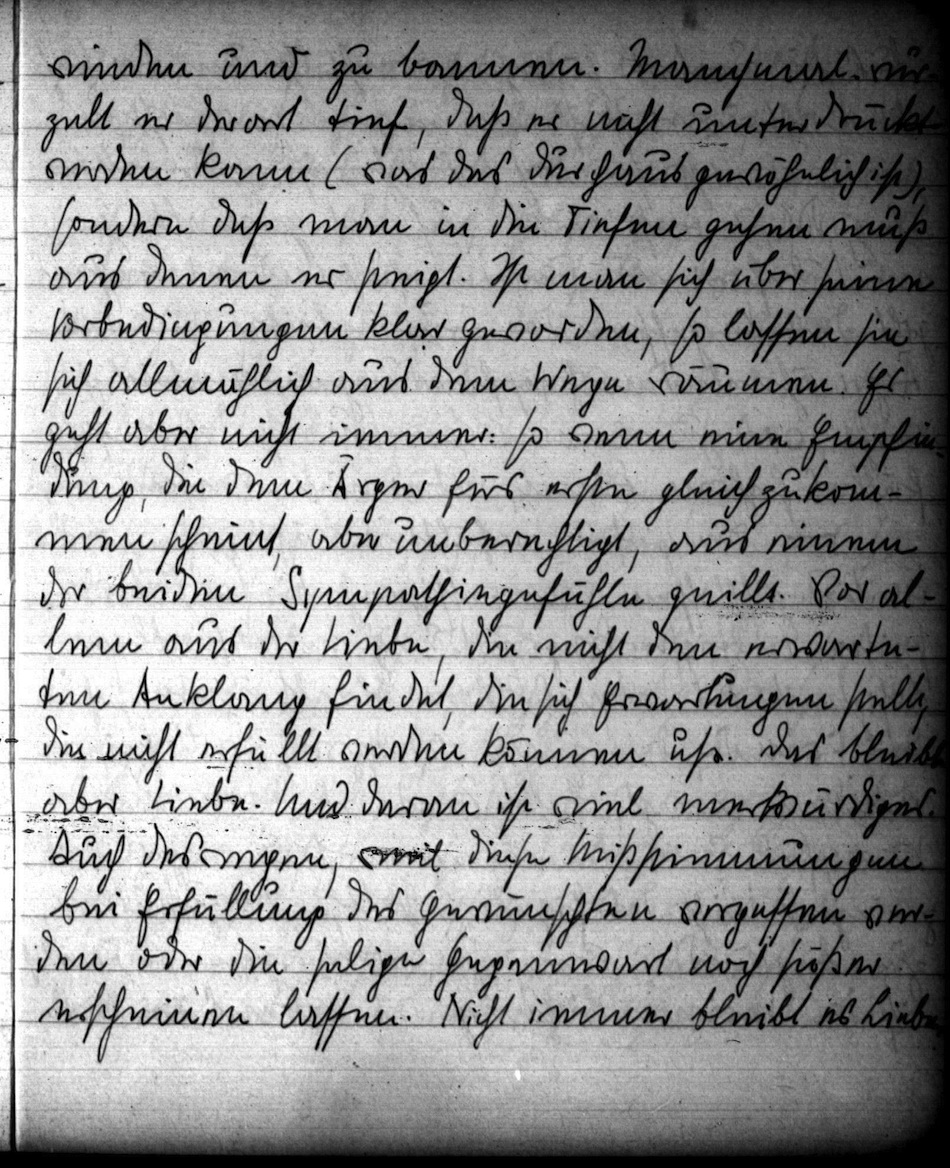 winden und zu bannen. Manchmal wur-
zelt er derart tief, daß er nicht unterdrückt
werden kann (was das durchaus gewöhnlich ist),
sondern daß man in die Tiefen gehen muß
aus denen er steigt. Ist man sich über seine
Vorbedingungen klar geworden, so lassen sie
sich allmählich aus dem Wege räumen. Es
geht aber nicht immer: so wenn eine Empfin-
dung, die dem Ärger fürs erste gleichzukom-
men scheint, aber unberechtigt, aus einem
der beiden Sympathiegefühle quillt. Vor al-
lem aus der Liebe, die nicht den erwarte-
ten Anklang findet, die sich Erwartungen stellt,
die nicht erfüllt werden können usw. Das bleibt
aber Liebe. Und daran ist viel merkwürdiges.
Auch deswegen, weil diese Mißstimmungen
bei Erfüllung des Gewünschten vergessen wer-
den oder die selige Gegenwart noch süßer
erscheinen lassen. Nicht immer bleibt es Liebe